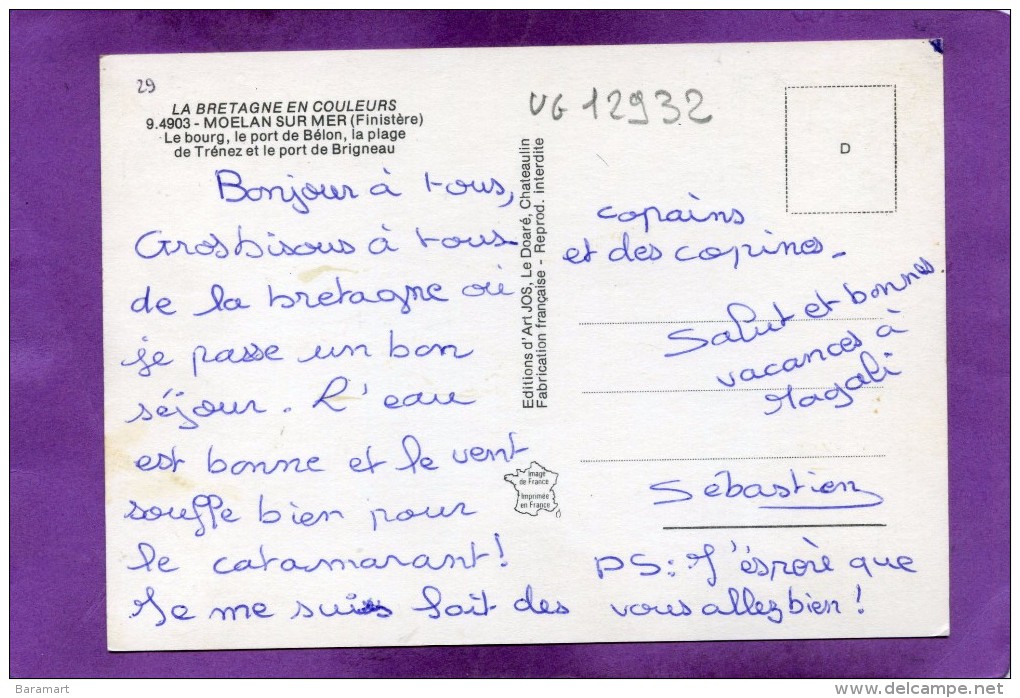 29
LA BRETAGNE EN COULEURS
9.4903 - MOELAN SUR MER (Finistère)
Le bourg, le port de Bélon, la plage
de Trénez et le port de Brigneau
VG 12932
D
Bonjour à tous,
Grosbisous à tous
de la bretagne où
je passe un bon
séjour. L'eau
est bonne et le vent
souffle bien pour
le catamarant !
Je me suis fait des
copains
et des copines.
Salut et bonnes
vacances à
Magali
Sébastien
PS: J'ésporè que
vous allez bien !
Editions d'Art JOS, Le Doaré, Chateaulin
Fabrication française - Reprod. interdite
Image
de France
Imprimée
en France
Baramart
www.delcampe.net